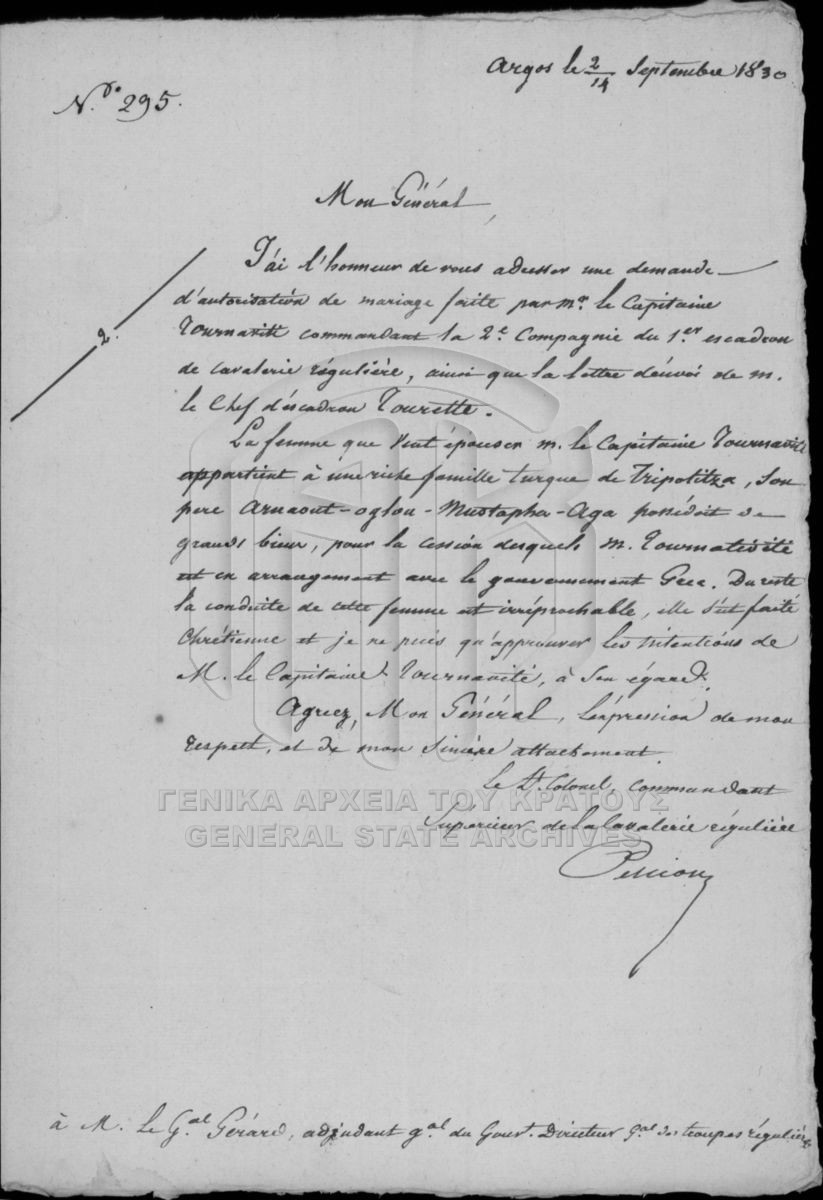 Argos le 2/14 Septembre 1830
N.º 295.
Mon Général,
2.
J'ai l'honneur de vous adresser une demande
d'autorisation de mariage faite par Mr. le Capitaine
Tournavitti commandant la 2e Compagnie du 1.er escadron
de cavalerie régulière, ainsi que la lettre d'envoi de M.
le Chef d'éscadron Tourette.
La femme que veut épouser M. le Capitaine Tournaviti
appartient à une riche famille turque de Tripolitza, Son
pere Arnaout-oglou-Mustapha-Aga possédoit de
grands biens, pour la cession desquels M. Tournativiti
est en arrangement avec le gouvernement Grec. Du reste
la conduite de cette femme est irréprochable, elle s'est faite
Chrétienne et je ne puis qu'approuver les intentions de
M. le Capitaine Tournaviti, à Son égard.
Agréez, Mon Général, l'expression de mon
respect, et de mon Sincère attachement.
Le Lt. Colonel, Commandant
Supérieur de la Cavalerie régulière
Pellion
ΓΕΝΙΚΑ ΑΡΧΕΙΑ ΤΟΥ ΚΡΑΤΟΥΣ
GENERAL STATE ARCHIVES
à M. Le G.al Gérard, adjudant g.al du Gouvt. Directeur g.al des troupes régulières